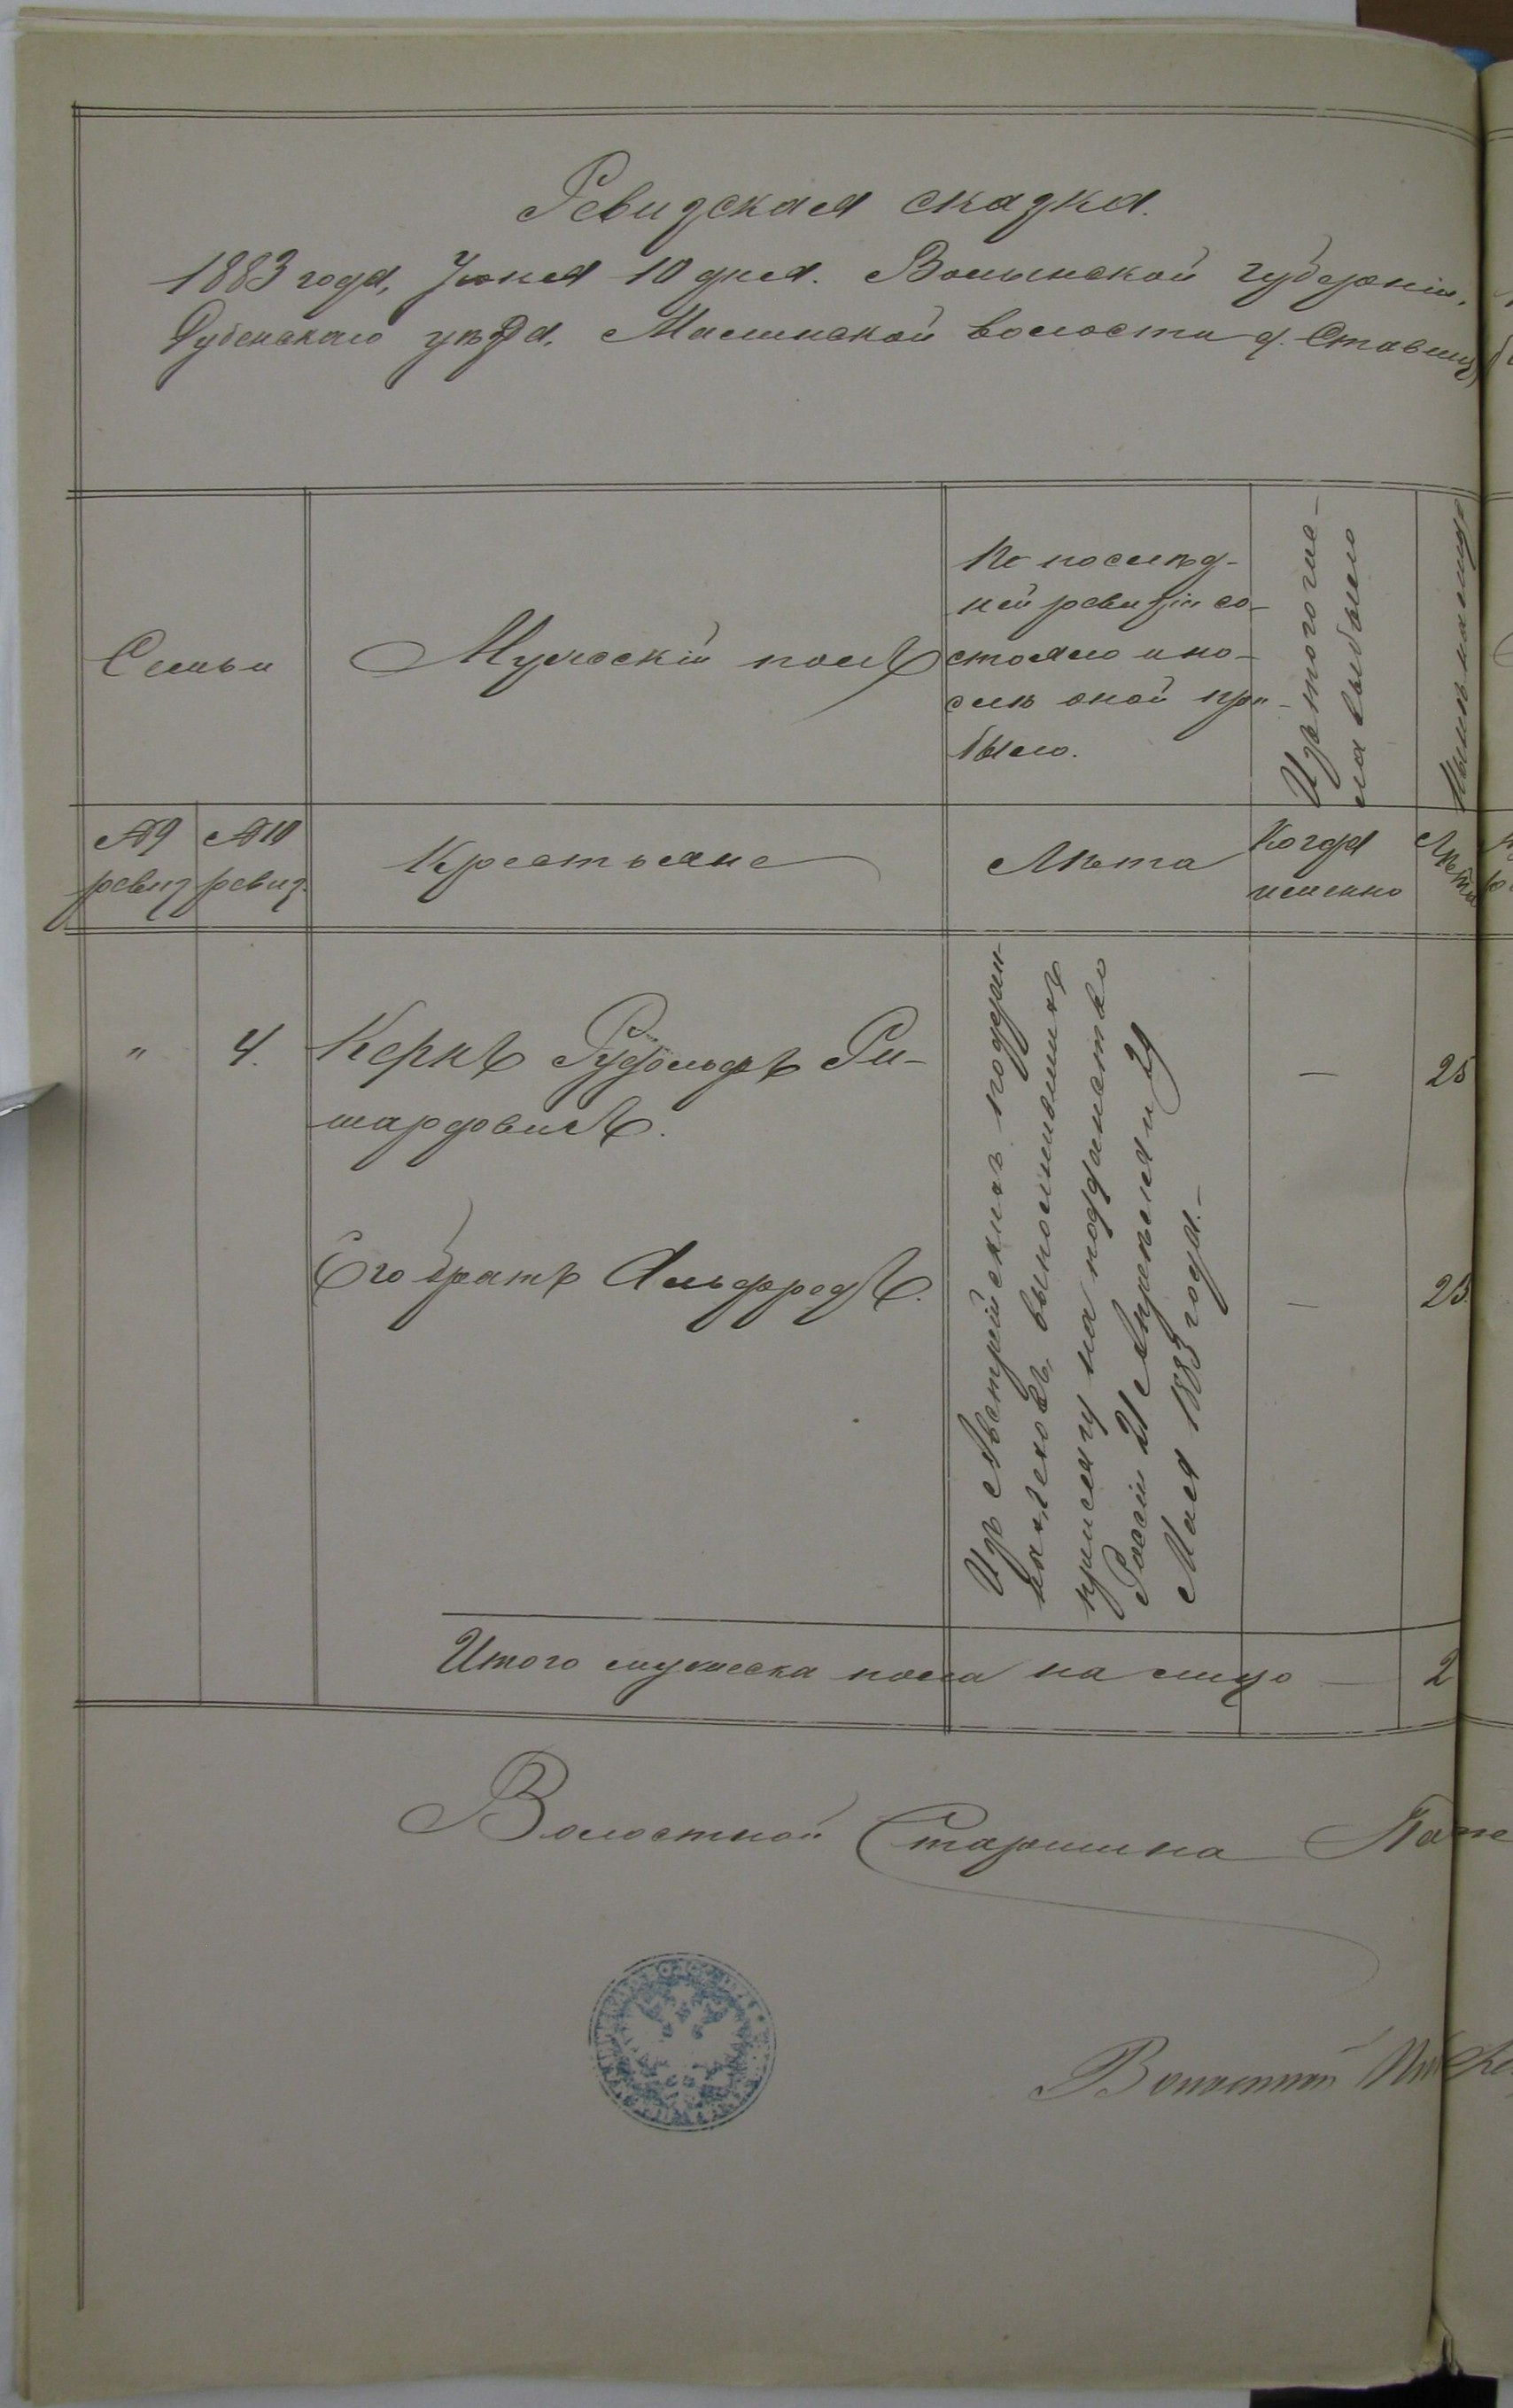 Ревизская сказка.
1883 года, Іюня 10 дня. Волынской губерніи,
Дубенскаго уѣзда, Малинской волости д. Ставищ
Семьи
Мужескій полъ
По послѣд-
ней ревизіи со-
стояло и по-
слѣ оной при-
было.
Изъ того чис-
ла выбыло
Нынѣ на лицо
№9
ревиз
№10
ревиз.
Крестьяне
Лѣта
Когда
именно
Лѣта
" 4. Керкъ Рудольфъ Ри- — 25
шардовичъ.
Его братъ Альфредъ. — 23.
Изъ Австрійскихъ поддан-
ныхъ Чеховъ, выполнившихъ
присягу на подданство
Россіи 21 Апрѣля и 29
Мая 1883 года.—
Итого мужеска пола на лицо — 2
Волостной Старшина
Волостной